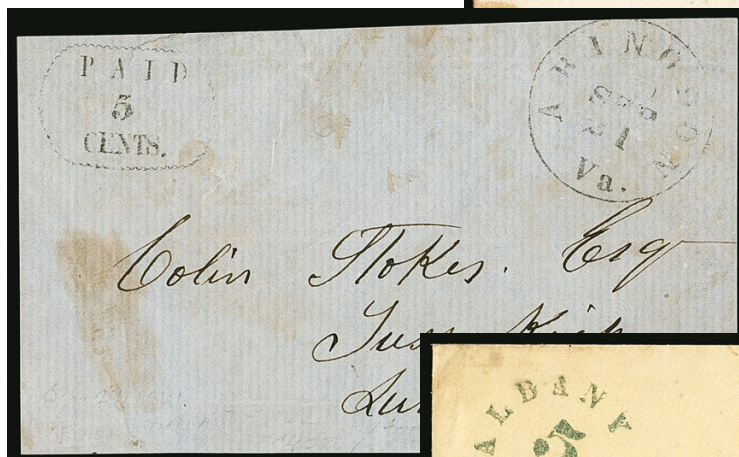 PAID
5
CENTS.
ABINGDON
SEP
21
Va.
Colin Stokes. Esq
ALBANY
5